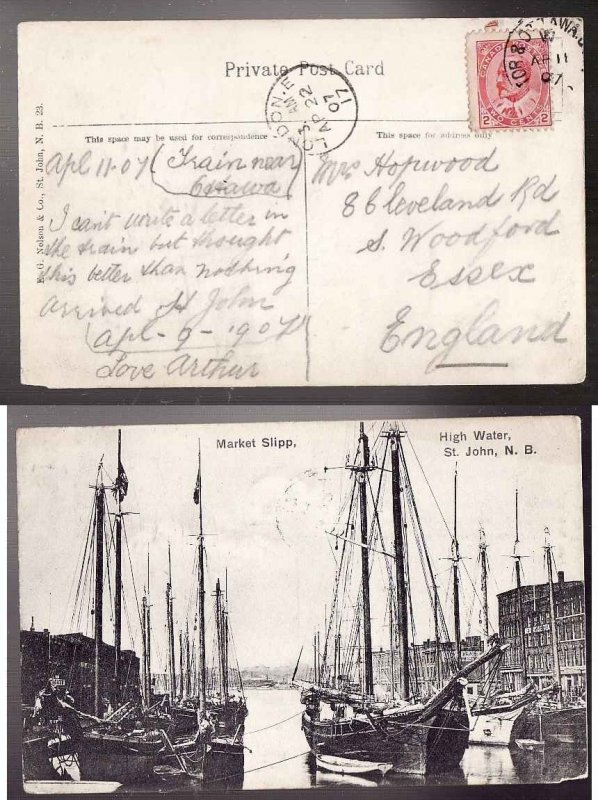 Private Post Card
This space may be used for correspondence
This space for address only
E. G. Nelson & Co., St. John, N. B. 23.
LONDON. E
3. AM
AP 22
07
17
TOR & OTTAWA
AP 11
07
CANADA
2 TWO CENTS 2
Apl 11-07 (Train near
Ottawa
I can't write a letter in
the train but thought
this better than nothing
Arrived St John
Apl-9-1907
Love Arthur
Mrs Hopwood
8 Cleveland Rd
S. Woodford
Essex
England
Market Slipp,
High Water,
St. John, N. B.